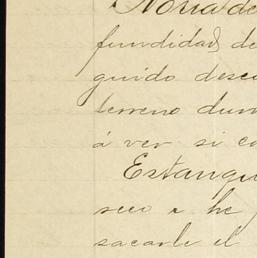 Noria de
fundidad de
guido desc
terreno dur
á ver si co
Estanqu
seco u he
sacarle el